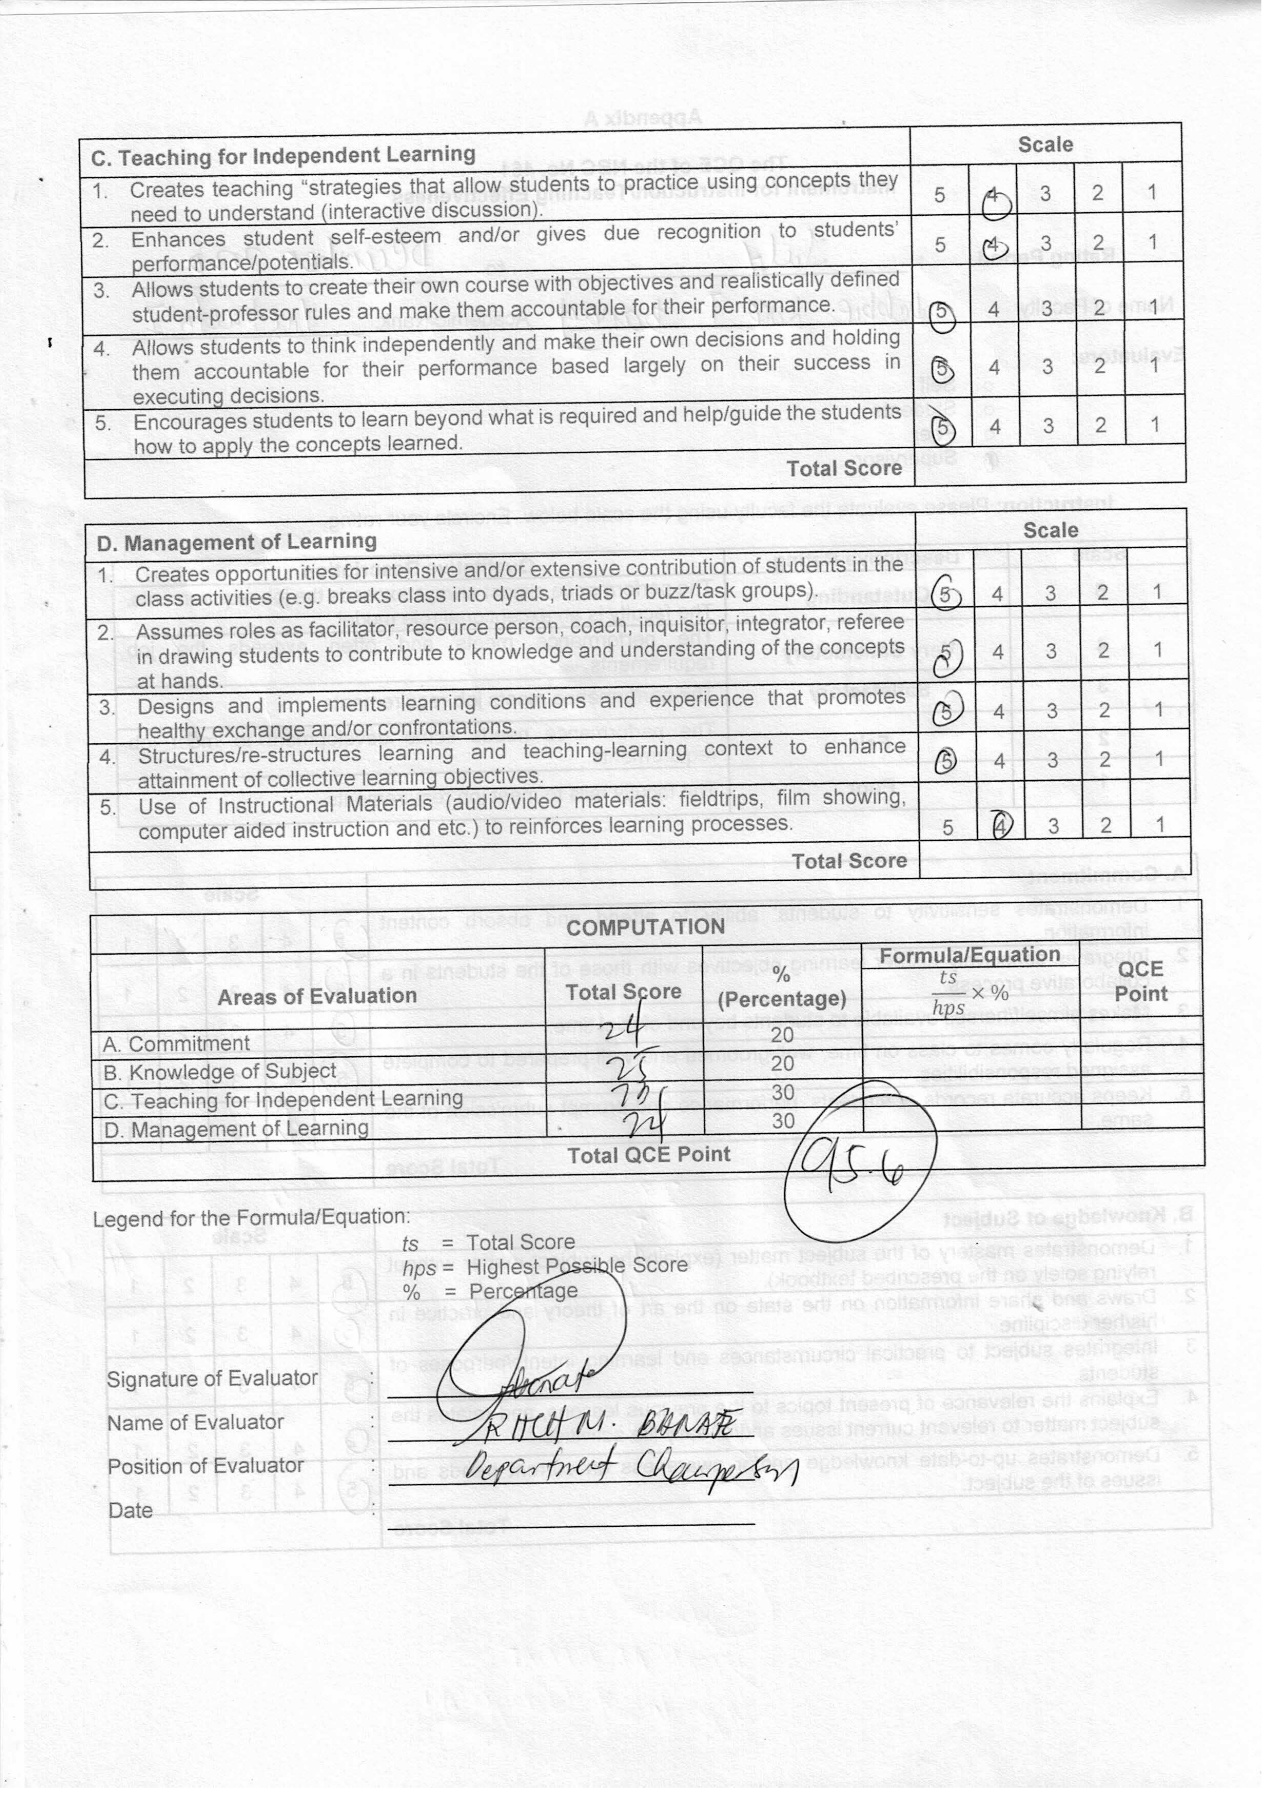 C. Teaching for Independent Learning Scale
1. Creates teaching “strategies that allow students to practice using concepts they
need to understand (interactive discussion). 5 4 3 2 1
2. Enhances student self-esteem and/or gives due recognition to students'
performance/potentials. 5 4 3 2 1
3. Allows students to create their own course with objectives and realistically defined
student-professor rules and make them accountable for their performance. 5 4 3 2 1
4. Allows students to think independently and make their own decisions and holding
them accountable for their performance based largely on their success in
executing decisions. 5 4 3 2 1
5. Encourages students to learn beyond what is required and help/guide the students
how to apply the concepts learned. 5 4 3 2 1
Total Score
D. Management of Learning Scale
1. Creates opportunities for intensive and/or extensive contribution of students in the
class activities (e.g. breaks class into dyads, triads or buzz/task groups). 5 4 3 2 1
2. Assumes roles as facilitator, resource person, coach, inquisitor, integrator, referee
in drawing students to contribute to knowledge and understanding of the concepts
at hands. 5 4 3 2 1
3. Designs and implements learning conditions and experience that promotes
healthy exchange and/or confrontations. 5 4 3 2 1
4. Structures/re-structures learning and teaching-learning context to enhance
attainment of collective learning objectives. 5 4 3 2 1
5. Use of Instructional Materials (audio/video materials: fieldtrips, film showing,
computer aided instruction and etc.) to reinforces learning processes. 5 4 3 2 1
Total Score
COMPUTATION
Areas of Evaluation Total Score % (Percentage) Formula/Equation ts/hps × % QCE Point
A. Commitment 24 20
B. Knowledge of Subject 25 20
C. Teaching for Independent Learning 30
D. Management of Learning 24 30
Total QCE Point 95.6
Legend for the Formula/Equation:
ts = Total Score
hps = Highest Possible Score
% = Percentage
Signature of Evaluator :
Name of Evaluator : M. BANATE
Position of Evaluator : Department Chairperson
Date :